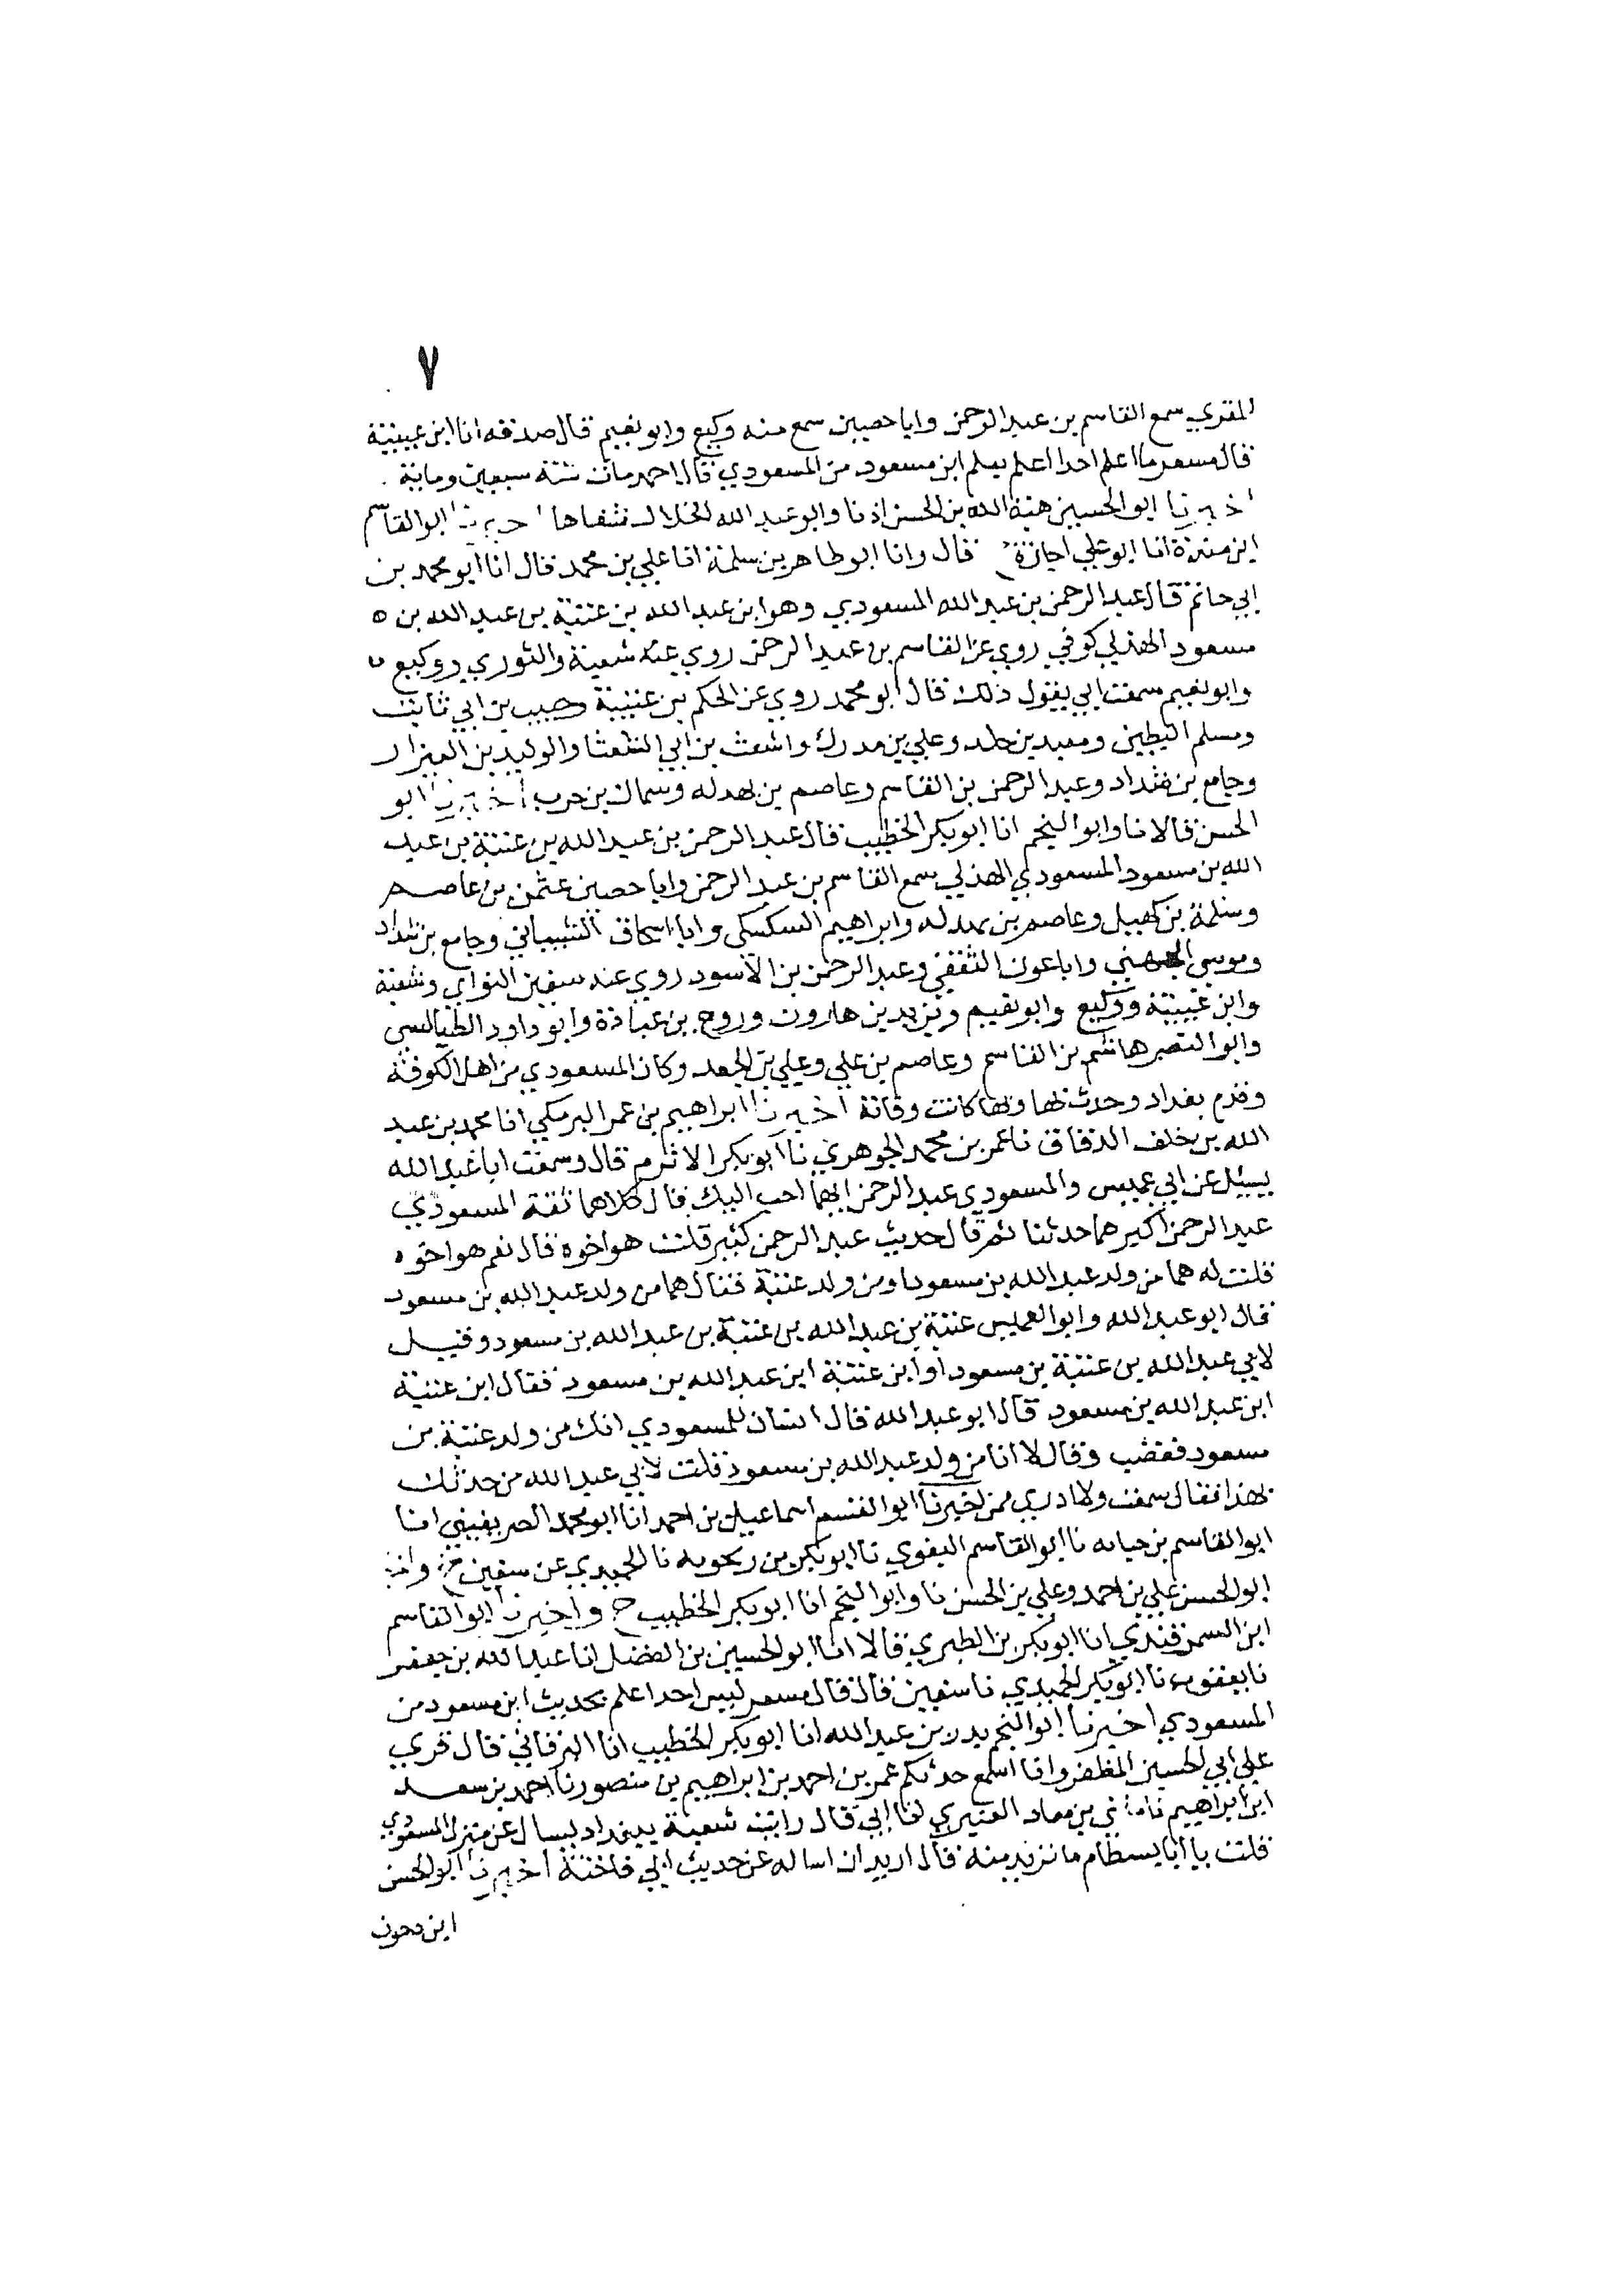 ٧
المقري سمع القاسم بن عبد الرحمن وابا حصين سمع منه وكيع وابو نعيم قال صدقه انا ابن عيينة
قال مسعر ما اعلم احدا اعلم بعلم ابن مسعود من المسعودي قال احمد مات سنة سبعين ومائة .
اخبرنا ابو الحسين هبة الله بن الحسن اذنا وابو عبد الله الخلال شفاها اخبرنا ابو القاسم
ابن مندة انا ابو علي اجازة ح قال وانا ابو طاهر بن سلمة انا علي بن محمد قال انا ابو محمد بن
ابي حاتم قال عبد الرحمن بن عبد الله المسعودي وهو ابن عبد الله بن عتبة بن عبد الله بن ه
مسعود الهذلي كوفي روي عن القاسم بن عبد الرحمن روي عنه شعبة والثوري ووكيع
وابو نعيم سمعت ابي يقول ذلك قال ابو محمد روي عن الحكم بن عتيبة وحبيب بن ابي ثابت
ومسلم البطين ومعبد بن خلد وعلي بن مدرك واشعث بن ابي الشعثا والوليد بن العيزار
وجامع بن شداد وعبد الرحمن بن القاسم وعاصم بن بهدله وسماك بن حرب اخبرنا ابو
الحسن قالا نا وابو النجم انا ابو بكر الخطيب قال عبد الرحمن بن عبد الله بن عتبة بن عبد
الله بن مسعود المسعودي الهذلي سمع القاسم بن عبد الرحمن وابا حصين عثمن بن عاصم
وسلمة بن كهيل وعاصم بن بهدله وابراهيم السكسكي وابا اسحاق الشيباني وجامع بن شداد
وموسي الجهني وابا عون الثقفي وعبد الرحمن بن الاسود روي عنه سفين الثواي وشعبة
وابن عيينة ووكيع وابو نعيم ويزيد بن هارون وروح بن عبادة وابو داود الطيالسي
وابو النصر هاشم بن القاسم وعاصم بن علي وعلي بن الجعد وكان المسعودي من اهل الكوفة
وقدم بغداد وحدث بها وبها كانت وفاته اخبرنا ابراهيم بن عمر البرمكي انا محمد بن عبد
الله بن خلف الدقاق نا عمر بن محمد الجوهري نا ابو بكر الاثرم قال وسمعت ابا عبد الله
يسئل عن ابي عميس والمسعودي عبد الرحمن ايهما احب اليك قال كلاهما ثقة المسعودي
عبد الرحمن اكبرهما حدثنا ثم قال حديث عبد الرحمن كثير قلت هو اخوه قال نعم هو اخوه
قلت له هما من ولد عبد الله بن مسعود او من ولد عتبة فقال هما من ولد عبد الله بن مسعود
فقال ابو عبد الله وابو العميس عتبة بن عبد الله بن عتبة بن عبد الله بن مسعود وقيل
لابي عبد الله بن عتبة بن مسعود او ابن عتبة ابن عبد الله بن مسعود فقال ابن عتبة
ابن عبد الله بن مسعود قال ابو عبد الله قال انسان للمسعودي انك من ولد عتبة بن
مسعود فغضب وقال لا انا من ولد عبد الله بن مسعود قلت لابي عبد الله من حدثك
بهذا فقال سمعت ولا ادري ممن اخبرنا ابو القسم اسماعيل بن احمد انا ابو محمد الصريفيني انا
ابو القاسم بن حبابه نا ابو القاسم البغوي نا ابو بكر بن زنجويه نا الحميدي عن سفين ح واخبرنا
ابو الحسن علي بن احمد وعلي بن الحسن نا وابو النجم انا ابو بكر الخطيب ح واخبرنا ابو القاسم
ابن السمرقندي انا ابو بكر بن الطبري قالا انا ابو الحسين بن الفضل انا عبد الله بن جعفر
نا يعقوب نا ابو بكر الحميدي نا سفين قال قال مسعر ليس احد اعلم بحديث ابن مسعود من
المسعودي اخبرنا ابو النجم بدر بن عبد الله انا ابو بكر الخطيب انا البرقاني قال قري
علي ابي الحسين المظفر وانا اسمع حدثكم عمر بن احمد بن ابراهيم بن منصور نا احمد بن سعد
ابن ابراهيم بن معاد العنبري نا ابي قال رايت شعبة ببغداد يسال عن منزل المسعودي
قلت يا ابا بسطام ما تريد منه قال اريد ان اساله عن حديث ابي فاختة اخبرنا ابو الحسن
ابن